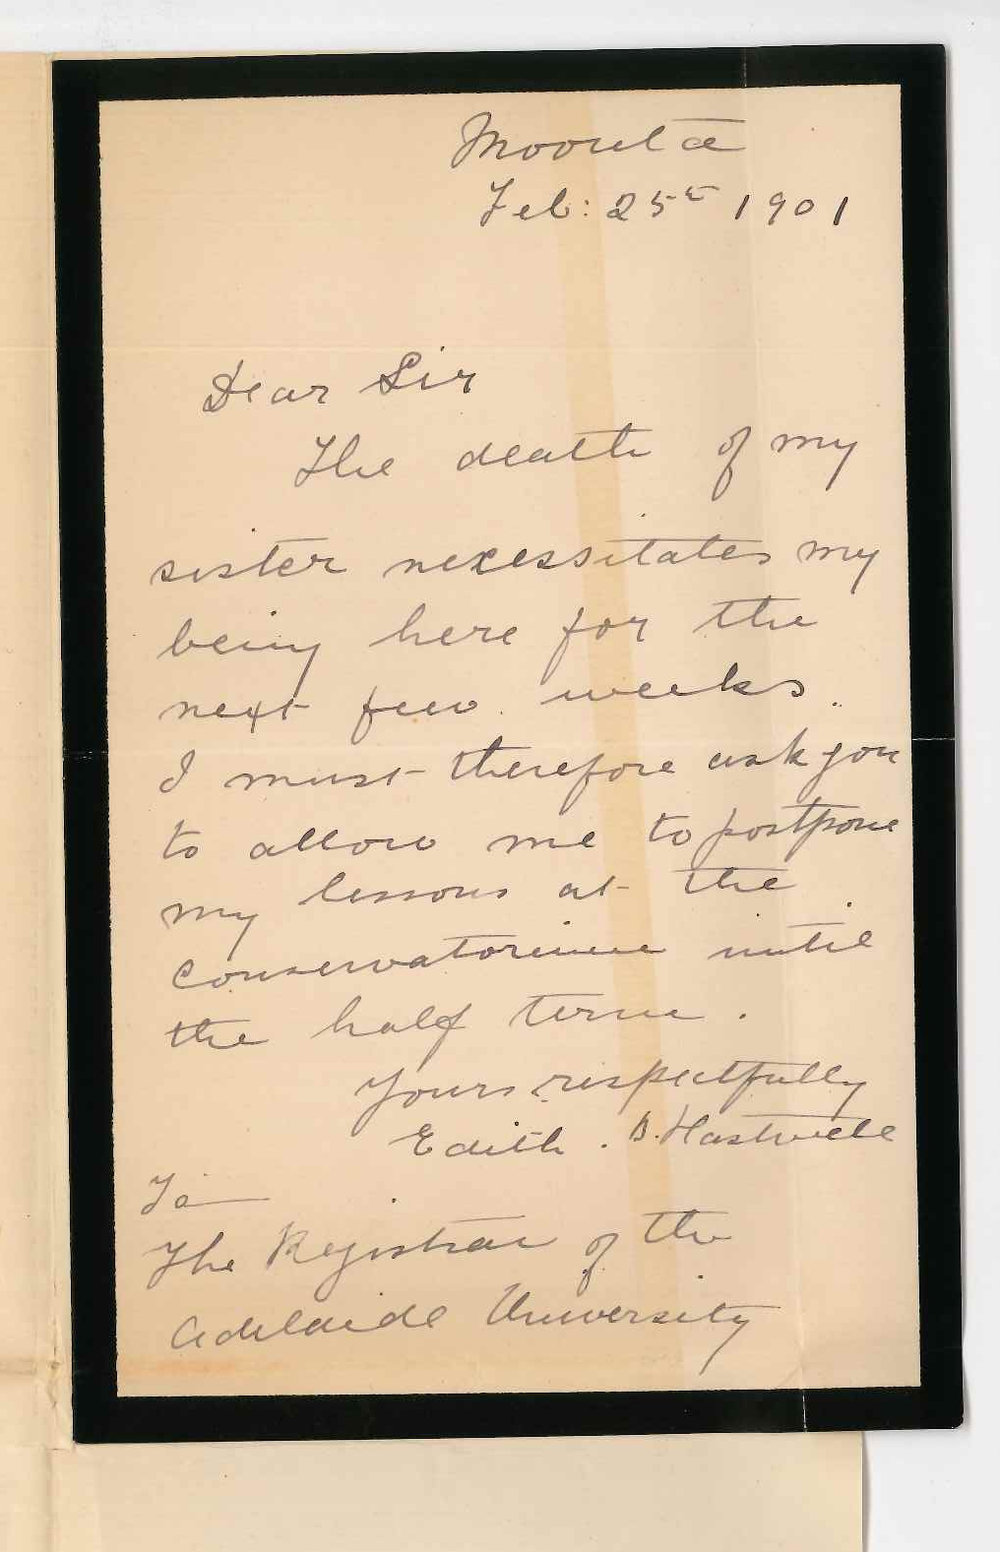 Moonta
Feb: 25th 1901
Dear Sir
The death of my
sister necessitates my
being here for the
next few weeks.
I must therefore ask you
to allow me to postpone
my lessons at the
Conservatorium until
the half term.
Yours respectfully
Edith. B. Hastwell
To
The Registrar of the
Adelaide University